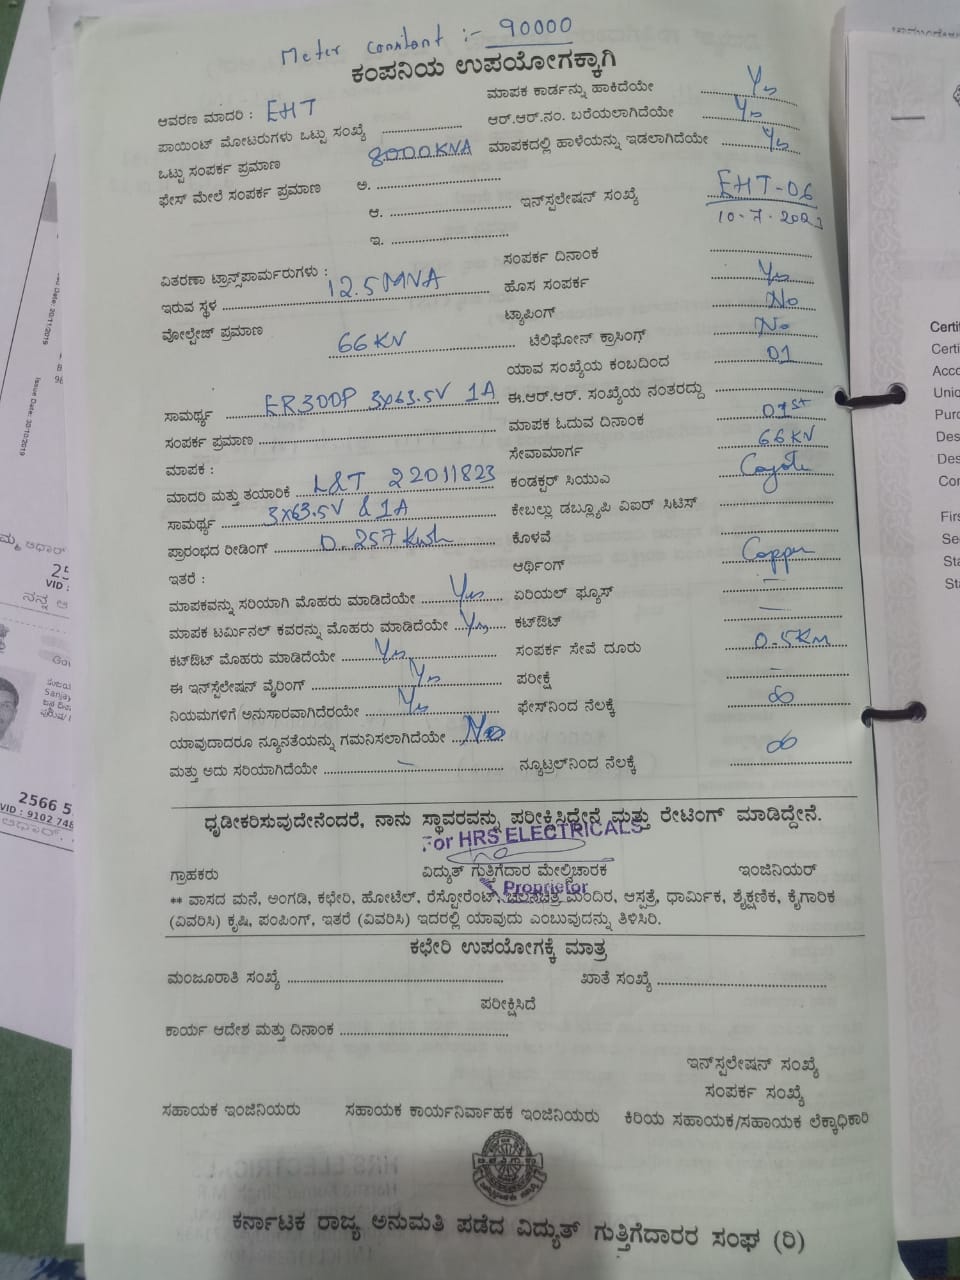 Meter constant :- 90000
ಕಂಪನಿಯ ಉಪಯೋಗಕ್ಕಾಗಿ
ಆವರಣ ಮಾದರಿ : EHT
ಮಾಪಕ ಕಾರ್ಡನ್ನು ಹಾಕಿದೆಯೇ Yes
ಪಾಯಿಂಟ್ ಮೋಟರುಗಳು ಒಟ್ಟು ಸಂಖ್ಯೆ
ಆರ್.ಆರ್.ನಂ. ಬರೆಯಲಾಗಿದೆಯೇ Yes
ಒಟ್ಟು ಸಂಪರ್ಕ ಪ್ರಮಾಣ 8000KVA
ಮಾಪಕದಲ್ಲಿ ಹಾಳೆಯನ್ನು ಇಡಲಾಗಿದೆಯೇ Yes
ಫೇಸ್ ಮೇಲೆ ಸಂಪರ್ಕ ಪ್ರಮಾಣ ಅ.
ಆ.
ಇನ್‌ಸ್ಪಲೇಷನ್ ಸಂಖ್ಯೆ EHT-06
10-7-202
ಇ.
ವಿತರಣಾ ಟ್ರಾನ್ಸ್‌ಫಾರ್ಮರುಗಳು :
ಸಂಪರ್ಕ ದಿನಾಂಕ
ಇರುವ ಸ್ಥಳ 12.5MVA
ಹೊಸ ಸಂಪರ್ಕ Yes
ವೋಲ್ಟೇಜ್ ಪ್ರಮಾಣ 66KV
ಟ್ಯಾಪಿಂಗ್ No
ಟೆಲಿಫೋನ್ ಕ್ರಾಸಿಂಗ್ No
ಯಾವ ಸಂಖ್ಯೆಯ ಕಂಬದಿಂದ 01
ಸಾಮರ್ಥ್ಯ ER300P 3x63.5V 1A
ಈ.ಆರ್.ಆರ್. ಸಂಖ್ಯೆಯ ನಂತರದ್ದು
ಸಂಪರ್ಕ ಪ್ರಮಾಣ
ಮಾಪಕ ಓದುವ ದಿನಾಂಕ 01st
ಮಾಪಕ :
ಸೇವಾಮಾರ್ಗ 66KV
ಮಾದರಿ ಮತ್ತು ತಯಾರಿಕೆ L&T 22011823
ಕಂಡಕ್ಟರ್ ಸಿಯುಎ Coyote
ಸಾಮರ್ಥ್ಯ 3x63.5V & 1A
ಕೇಬಲ್ಲು ಡಬ್ಲ್ಯೂಪಿ ವಿಐರ್ ಸಿಟಿಸ್
ಪ್ರಾರಂಭದ ರೀಡಿಂಗ್ 0.257 Kwh
ಕೊಳವೆ
ಇತರೆ :
ಆರ್ಥಿಂಗ್ Copper
ಮಾಪಕವನ್ನು ಸರಿಯಾಗಿ ಮೊಹರು ಮಾಡಿದೆಯೇ Yes
ಏರಿಯಲ್ ಫ್ಯೂಸ್ —
ಮಾಪಕ ಟರ್ಮಿನಲ್ ಕವರನ್ನು ಮೊಹರು ಮಾಡಿದೆಯೇ Yes
ಕಟ್‌ಔಟ್ —
ಕಟ್‌ಔಟ್ ಮೊಹರು ಮಾಡಿದೆಯೇ Yes
ಸಂಪರ್ಕ ಸೇವೆ ದೂರು 0.5Km
ಈ ಇನ್‌ಸ್ಪೆಲೇಷನ್ ವೈರಿಂಗ್ Yes
ಪರೀಕ್ಷೆ —
ನಿಯಮಗಳಿಗೆ ಅನುಸಾರವಾಗಿದೆರಯೇ Yes
ಫೇಸ್‌ನಿಂದ ನೆಲಕ್ಕೆ ∞
ಯಾವುದಾದರೂ ನ್ಯೂನತೆಯನ್ನು ಗಮನಿಸಲಾಗಿದೆಯೇ No
ಮತ್ತು ಅದು ಸರಿಯಾಗಿದೆಯೇ —
ನ್ಯೂಟ್ರಲ್‌ನಿಂದ ನೆಲಕ್ಕೆ ∞
ಧೃಡೀಕರಿಸುವುದೇನೆಂದರೆ, ನಾನು ಸ್ಥಾವರವನ್ನು ಪರೀಕ್ಷಿಸಿದ್ದೇನೆ ಮತ್ತು ರೇಟಿಂಗ್ ಮಾಡಿದ್ದೇನೆ.
For HRS ELECTRICALS
ಗ್ರಾಹಕರು ವಿದ್ಯುತ್ ಗುತ್ತಿಗೆದಾರ ಮೇಲ್ವಿಚಾರಕ ಇಂಜಿನಿಯರ್
Proprietor
** ವಾಸದ ಮನೆ, ಅಂಗಡಿ, ಕಛೇರಿ, ಹೋಟೆಲ್, ರೆಸ್ಟೋರೆಂಟ್, ಚಲನಚಿತ್ರ ಮಂದಿರ, ಆಸ್ಪತ್ರೆ, ಧಾರ್ಮಿಕ, ಶೈಕ್ಷಣಿಕ, ಕೈಗಾರಿಕ
(ವಿವರಿಸಿ) ಕೃಷಿ, ಪಂಪಿಂಗ್, ಇತರೆ (ವಿವರಿಸಿ) ಇದರಲ್ಲಿ ಯಾವುದು ಎಂಬುವುದನ್ನು ತಿಳಿಸಿರಿ.
ಕಛೇರಿ ಉಪಯೋಗಕ್ಕೆ ಮಾತ್ರ
ಮಂಜೂರಾತಿ ಸಂಖ್ಯೆ ಖಾತೆ ಸಂಖ್ಯೆ
ಪರೀಕ್ಷಿಸಿದೆ
ಕಾರ್ಯ ಆದೇಶ ಮತ್ತು ದಿನಾಂಕ
ಇನ್‌ಸ್ಪಲೇಷನ್ ಸಂಖ್ಯೆ
ಸಂಪರ್ಕ ಸಂಖ್ಯೆ
ಸಹಾಯಕ ಇಂಜಿನಿಯರು ಸಹಾಯಕ ಕಾರ್ಯನಿರ್ವಾಹಕ ಇಂಜಿನಿಯರು ಕಿರಿಯ ಸಹಾಯಕ/ಸಹಾಯಕ ಲೆಕ್ಕಾಧಿಕಾರಿ
ಕರ್ನಾಟಕ ರಾಜ್ಯ ಅನುಮತಿ ಪಡೆದ ವಿದ್ಯುತ್ ಗುತ್ತಿಗೆದಾರರ ಸಂಘ (ರಿ)
Issue Date: 30/10/2019
2566 5
VID : 9102 748
Certi
Certi
Acco
Unio
Purc
Des
Des
Con
Firs
Se
Sta
St